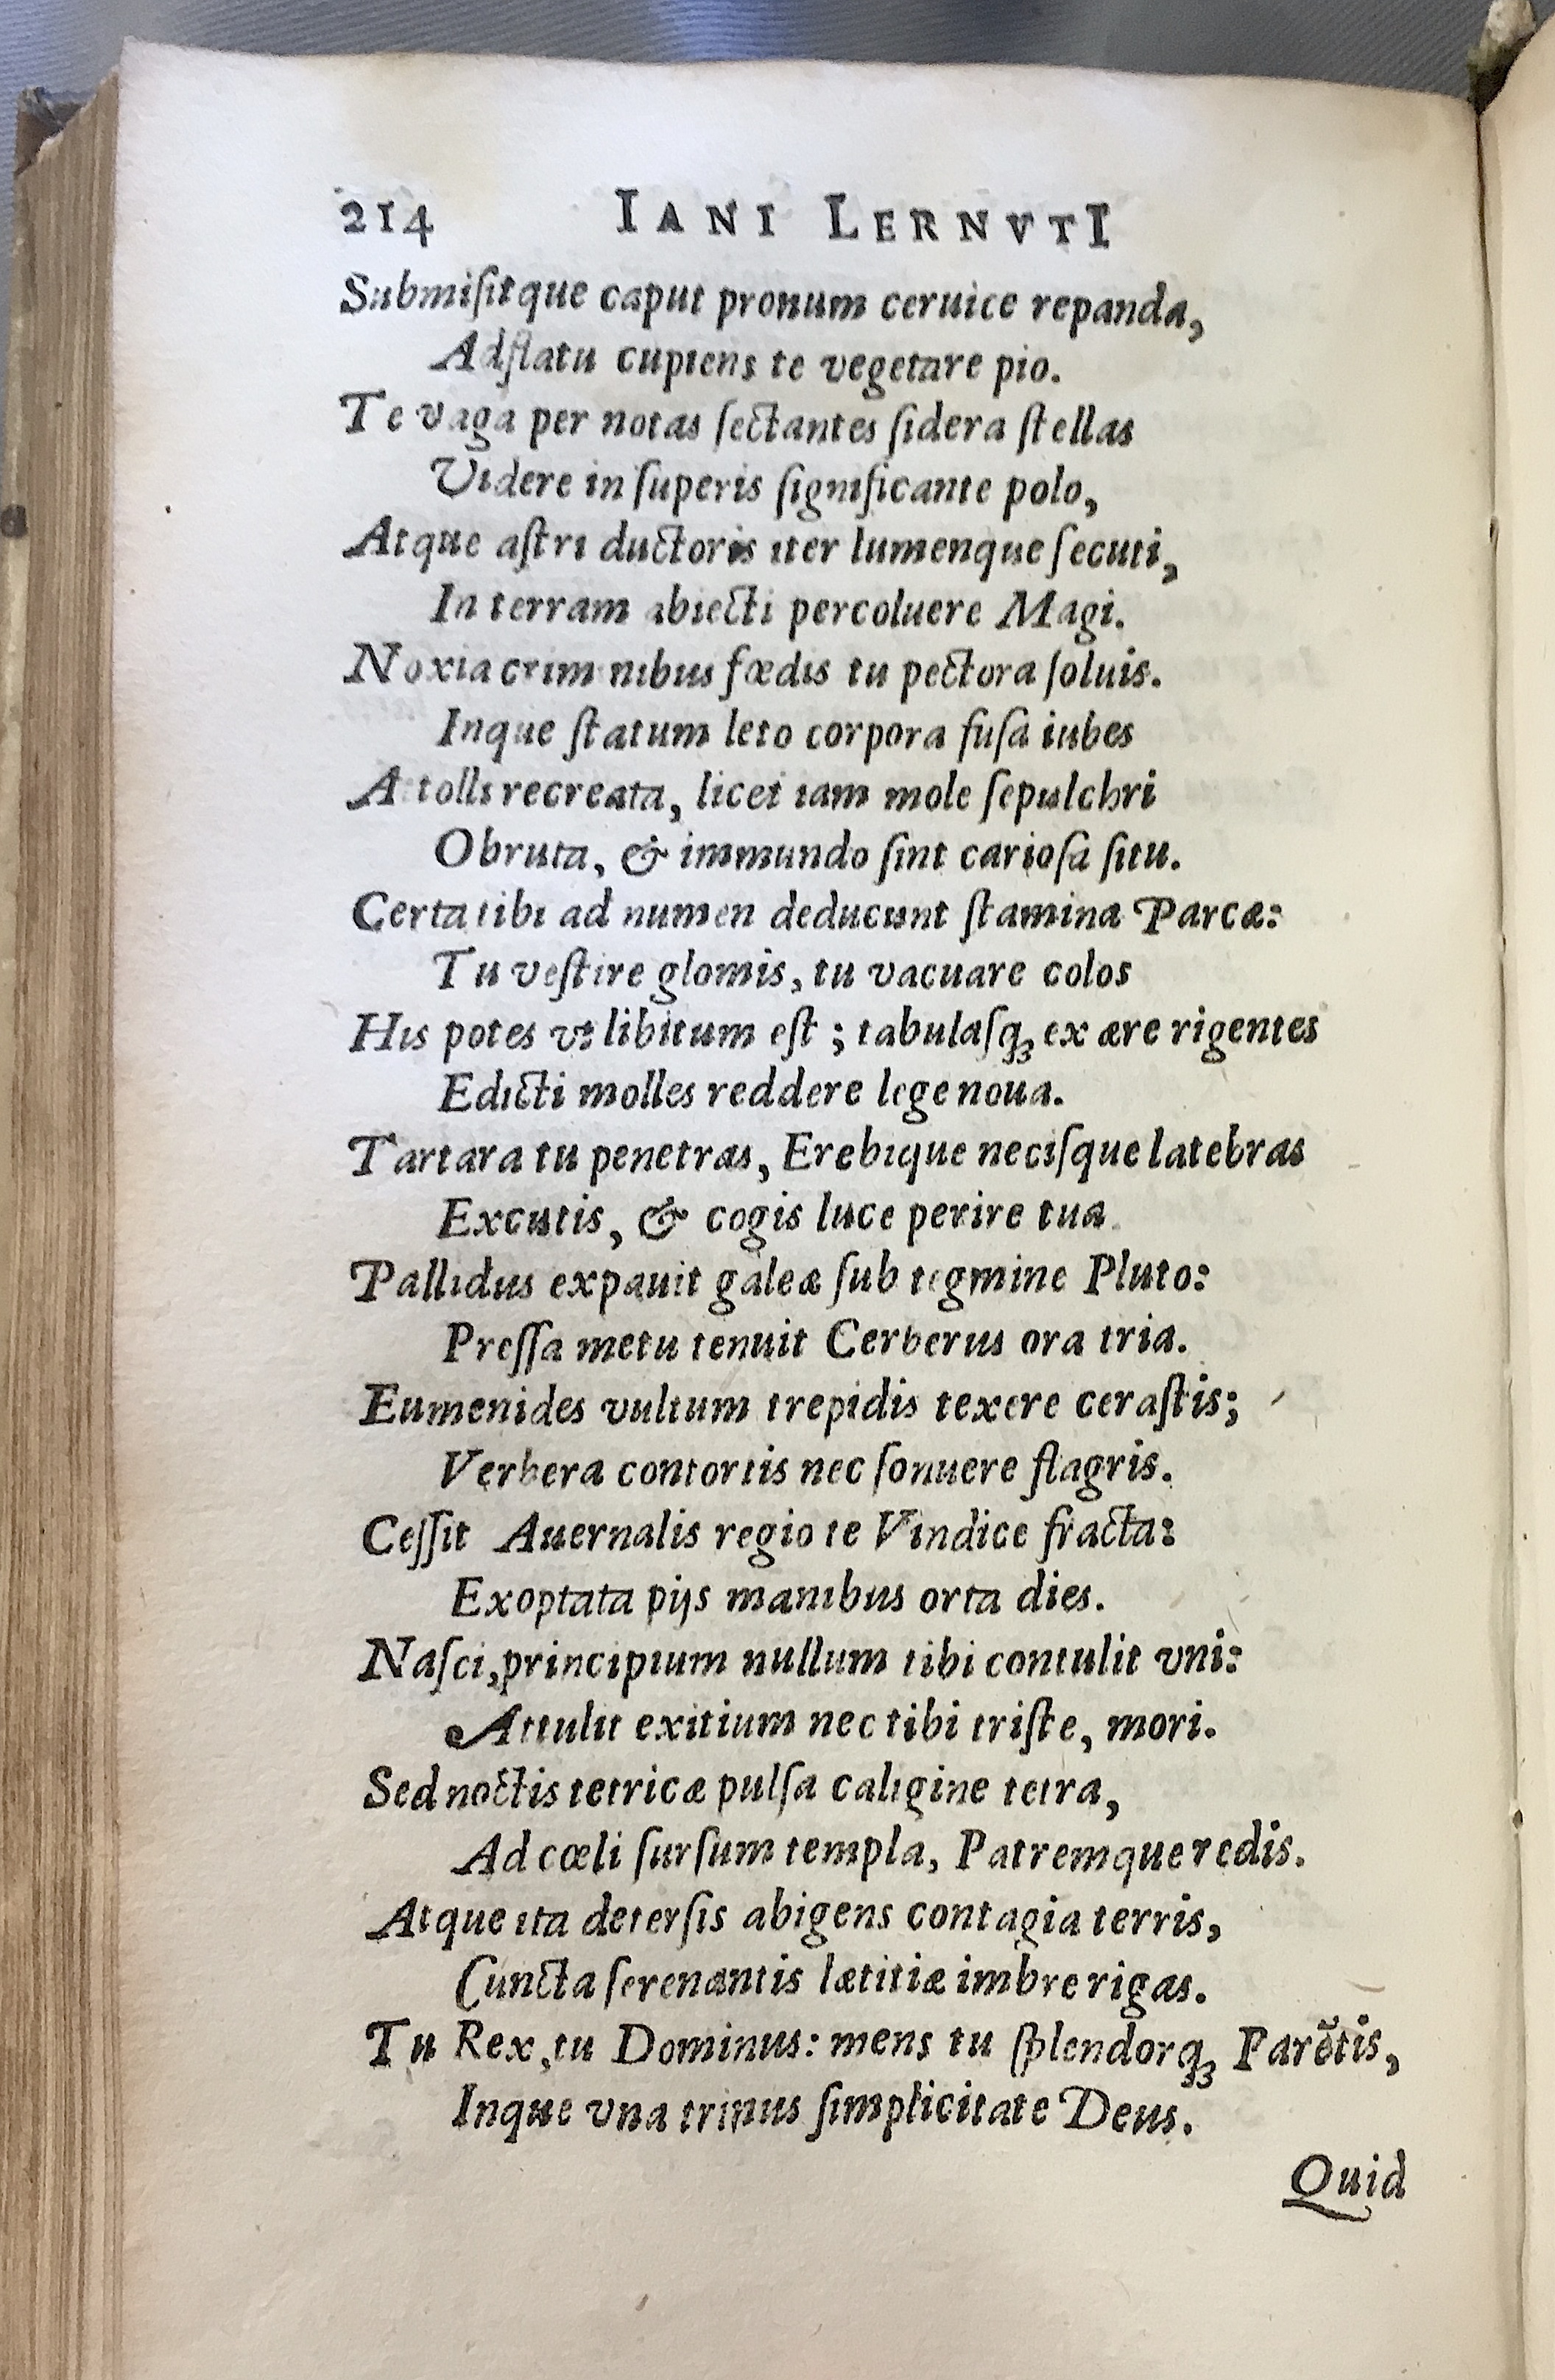 214 IANI LERNVTI
Submiſitque caput pronum ceruice repanda,
Adflatu cupiens te vegetare pio.
Te vaga per notas ſectantes ſidera ſtellas
Videre in ſuperis ſignificante polo,
Atque aſtri ductoris iter lumenque ſecuti,
In terram abiecti percoluere Magi.
Noxia criminibus fœdis tu pectora ſoluis.
Inque ſtatum leto corpora fuſa iubes
Attolli recreata, licet iam mole ſepulchri
Obruta, & immundo ſint carioſa ſitu.
Certa tibi ad numen deducunt ſtamina Parcæ:
Tu veſtire glomis, tu vacuare colos
His potes vt libitum eſt; tabulaſq́; ex ære rigentes
Edicti molles reddere lege noua.
Tartara tu penetras, Erebique neciſque latebras
Excutis, & cogis luce perire tua.
Pallidus expauit galeæ ſub tegmine Pluto:
Preſſa metu tenuit Cerberus ora tria.
Eumenides vultum trepidis texere ceraſtis;
Verbera contortis nec ſonuere flagris.
Ceſſit Auernalis regio te Vindice fracta:
Exoptata pijs manibus orta dies.
Naſci, principium nullum tibi contulit vni:
Attulit exitium nec tibi triſte, mori.
Sed noctis tetricæ pulſa caligine tetra,
Ad cœli ſurſum templa, Patremque redis.
Atque ita deterſis abigens contagia terris,
Cuncta ſerenantis lætitiæ imbre rigas.
Tu Rex, tu Dominus: mens tu ſplendorq; Parẽtis,
Inque vna trinus ſimplicitate Deus.
Quid